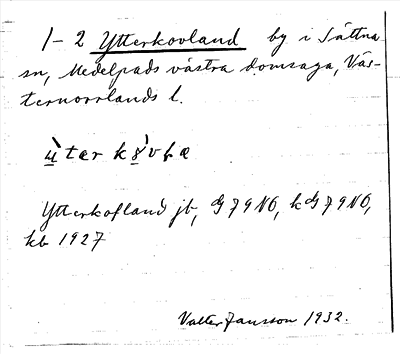 1-2 Ytterkovland by i Sättna
sn, Medelpads västra domsaga, Väs-
ternorrlands l.
Ytterkofland jb, GJ79NO, kGJ79NO,
kb 1927
Valter Jansson 1932.